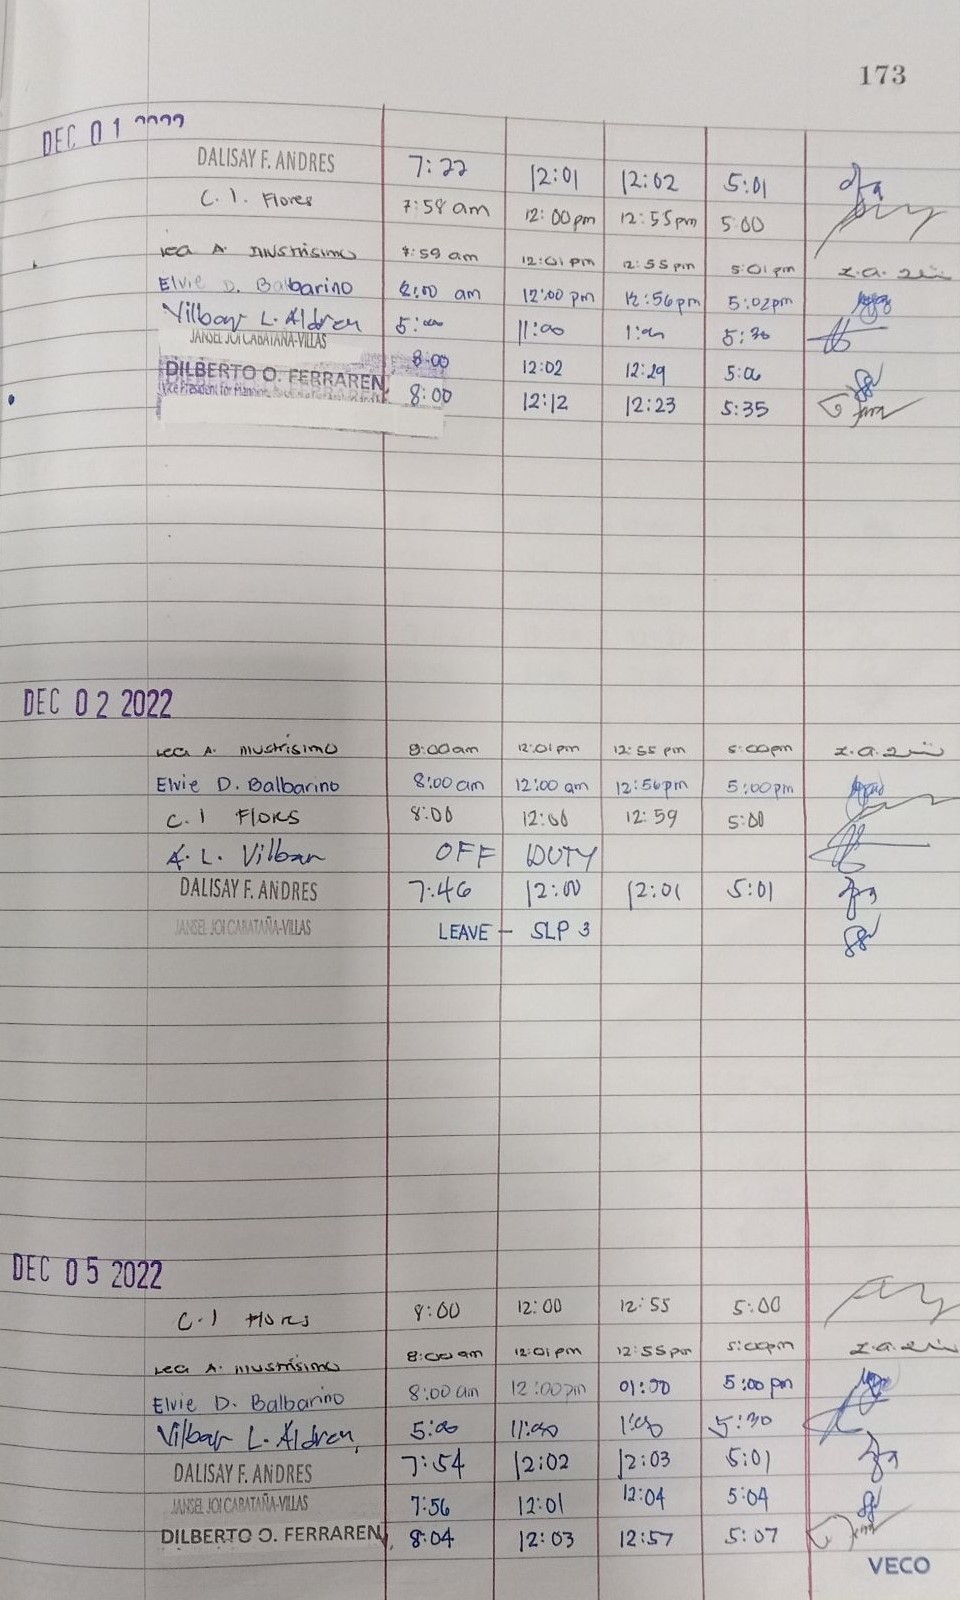 173
DEC 01
DALISAY F. ANDRES 7:22 12:01 12:02 5:01
C. I. Flores 7:58 am 12:00pm 12:55pm 5:00
Lea A. Illustrisimo 7:59 am 12:01 pm 12:55 pm 5:01 pm
Elvie D. Balbarino 8:00 am 12:00 pm 12:56pm 5:02pm
Vilbar L. Aldren 5:00 11:00 1:00 5:30
JANSEL JOI CABATAÑA-VILLAS 8:00 12:02 12:29 5:06
DILBERTO O. FERRAREN 8:00 12:12 12:23 5:35
Vice President for
DEC 02 2022
Lea A. Illustrisimo 8:00am 12:01pm 12:55 pm 5:00pm
Elvie D. Balbarino 8:00 am 12:00 am 12:56pm 5:00pm
C. I Flores 8:00 12:00 12:59 5:00
A. L. Vilbar OFF DUTY
DALISAY F. ANDRES 7:46 12:00 12:01 5:01
JANSEL JOI CABATAÑA-VILLAS LEAVE - SLP 3
DEC 05 2022
C. I Flores 8:00 12:00 12:55 5:00
Lea A. Illustrisimo 8:00am 12:01pm 12:55pm 5:00pm
Elvie D. Balbarino 8:00 am 12:00pm 01:00 5:00 pm
Vilbar L. Aldren 5:00 11:00 1:00 5:30
DALISAY F. ANDRES 7:54 12:02 12:03 5:01
JANSEL JOI CABATAÑA-VILLAS 7:56 12:01 12:04 5:04
DILBERTO O. FERRAREN 8:04 12:03 12:57 5:07
VECO